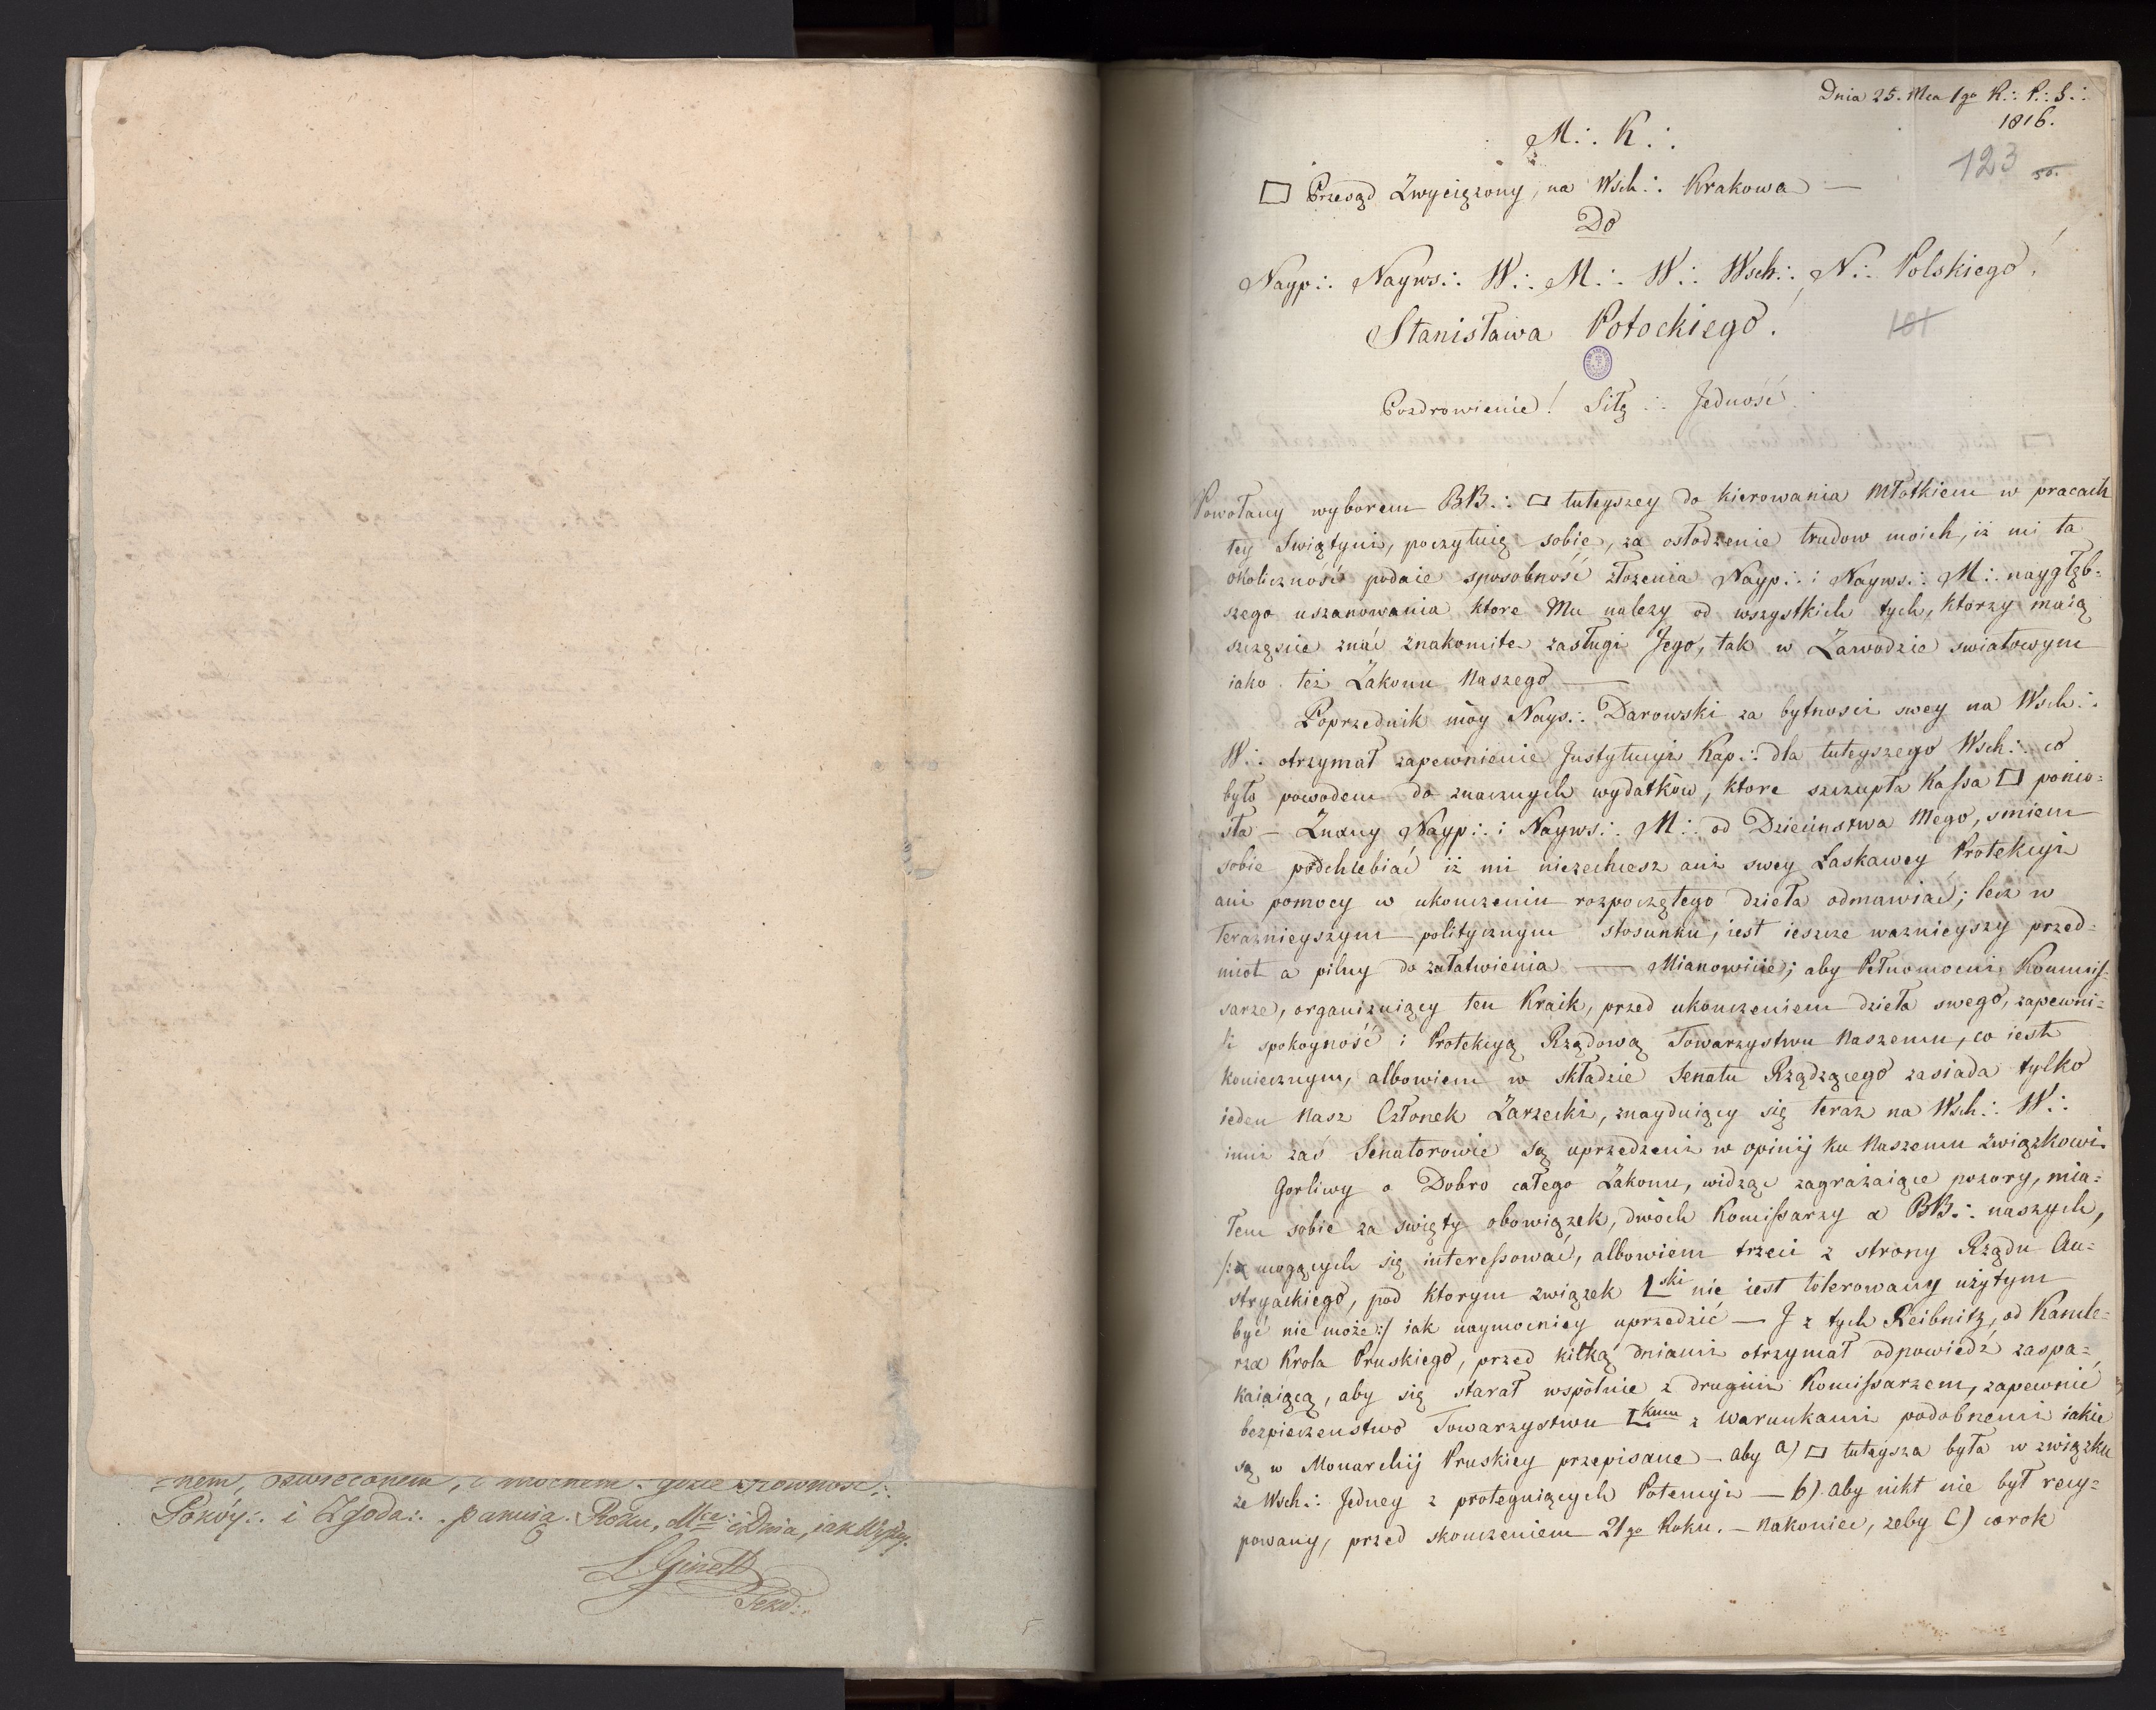 -nem, oswieconem, i mocnem. gdzie Rowność:.
Pokóy:. i Zgoda:. panuia. Roku, Mca: i Dnia, jak Wyżey.
L. Ginett
Sekr:.
Dnia 25. Mca 1go R∴ P∴ S∴
1816.
M∴ K∴
123
50.
□ Przesąd Zwyciężony, na Wsch∴ Krakowa —
Do
Nayp∴ Nayws∴ W∴ M∴ W∴ Wsch∴ N∴ Polskiego,
Stanisława Potockiego!
101
Pozdrowienie! Siłę ∴ Jedność
Powołany wyborem BB∴ □ tuteyszey do kierowania Młotkiem w pracach
tey Swiątyni, poczytuię sobie, za osłodzenie trudow moich, iż mi ta
okoliczność podaie sposobność złożenia Nayp∴ i Nayws∴ M∴ naygłęb=
szego uszanowania ktore Mu należy od wszystkich tych, ktorzy maią
szczęscie znać znakomite zasługi Jego, tak w Zawodzie swiatowym
iako też Zakonu Naszego —
Poprzednik móy Nays∴ Darowski za bytnosci swey na Wsch∴
W∴ otrzymał zapewnienie Justytucyi Kap∴ dla tuteyszego Wsch∴ co
było powodem do znacznych wydatków, ktore szczupła Kassa □ ponio=
sła — Znany Nayp∴ i Nayws∴ M∴ od Dzieciństwa Mego, smiem
sobie podchlebiać iż mi niezechcesz ani swey Łaskawey Protekcyi
ani pomocy w ukonczeniu rozpoczętego dzieła odmawiać; lecz w
teraznieyszym politycznym stosunku, iest ieszcze waznieyszy przed=
miot a pilny do załatwienia — Mianowicie; aby Pełnomocni Kommis=
sarze, organizuiący ten Kraik, przed ukonczeniem dzieła swego, zapewni=
li spokoyność i Protekcyą Rządową Towarzystwu Naszemu, co iest
koniecznym, albowiem w składzie Senatu Rządzącego zasiada tylko
ieden Nasz Członek Zarzecki, znayduiący się teraz na Wsch∴ W∴
inni zaś Senatorowie są uprzedzeni w opinij ku Naszemu związkowi
Gorliwy o Dobro całego Zakonu, widząc zagrażaiące pozory, mia=
łem sobie za swięty obowiązek, dwóch Komissarzy a BB∴ naszych,
/: mogących się interessować, albowiem trzeci z strony Rządu Au=
stryackiego, pod ktorym związek Lski nie iest tolerowany użytym
być nie może :/ iak naymocniey uprzedzić — J z tych Reibnitz, od Kancle=
rza Krola Pruskiego, przed kilką dniami otrzymał odpowiedź zaspa=
kaiaiącą, aby się starał wspólnie z drugim Komissarzem, zapewnić
bezpieczenstwo Towarzystwu Lkmu z warunkami podobnemi iakie
są w Monarchij Pruskiey przepisane — aby a) □ tuteysza była w związku
ze Wsch∴ Jedney z proteguiących Potencyi — b) aby nikt nie był recy=
powany, przed skonczeniem 21go Roku. — Nakoniec, żeby c) corok